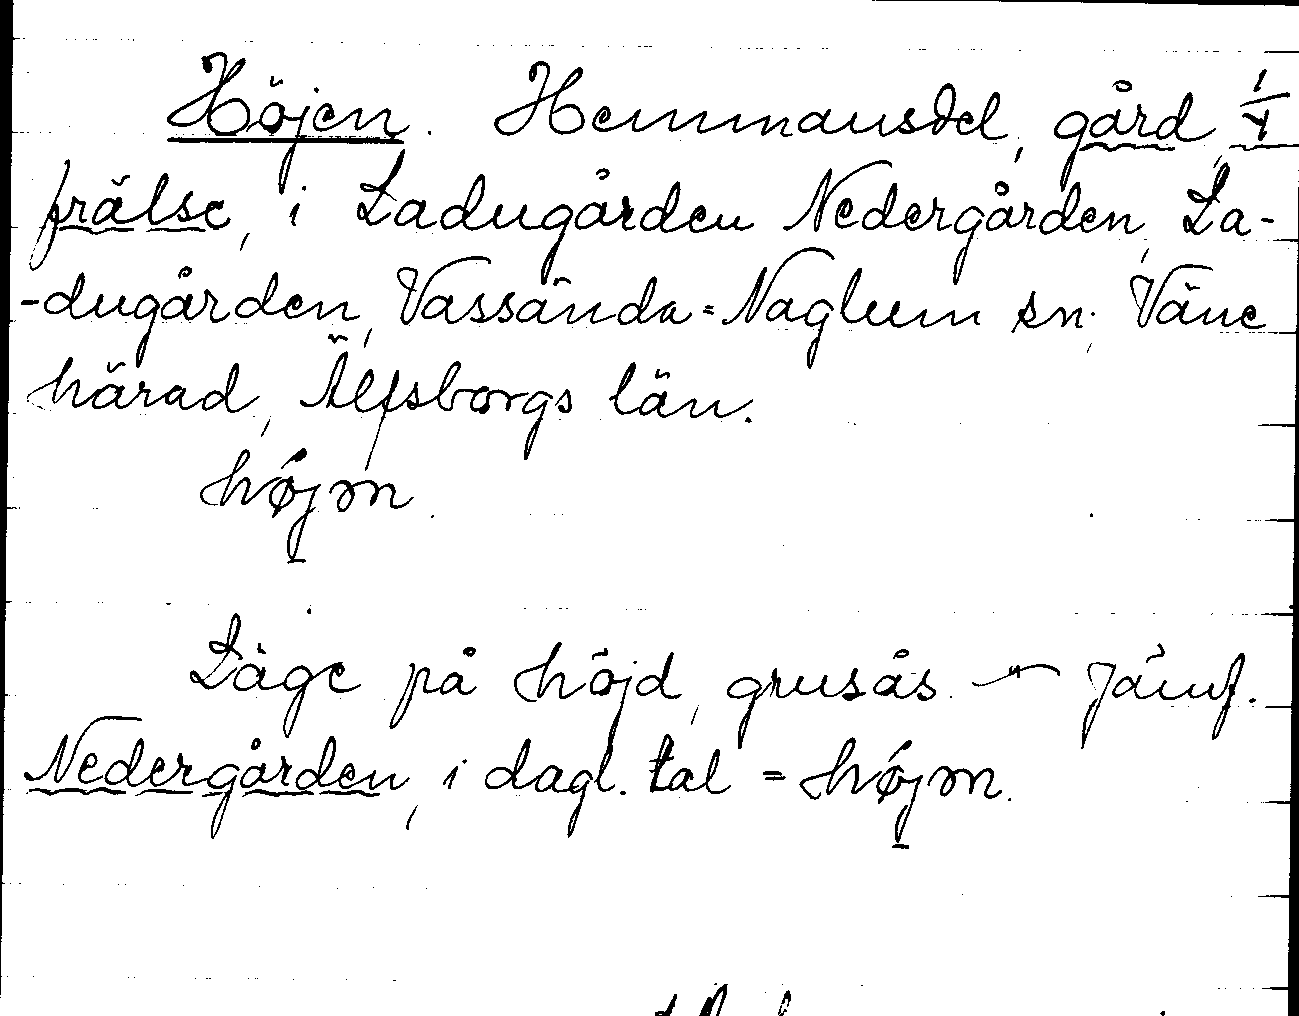 Höjen. Hemmansdel, gård, 1/4
frälse, i Ladugården Nedergården, La-
-dugården, Vassända=Naglum sn. Väne
härad, Älfsborgs län.
højən
Läge på höjd, grusås — Jämf.
Nedergården, i dagl. tal = højən.